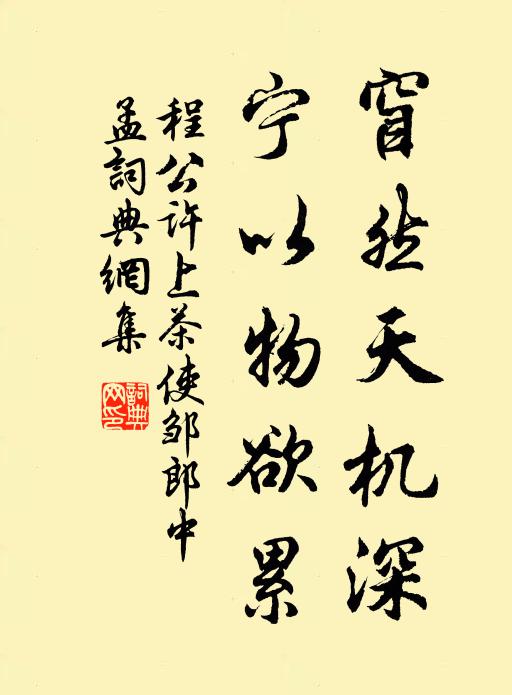 窅然天机深
宁以物欲累
程公许上茶使邹郎中
孟词典網集
詞典网印